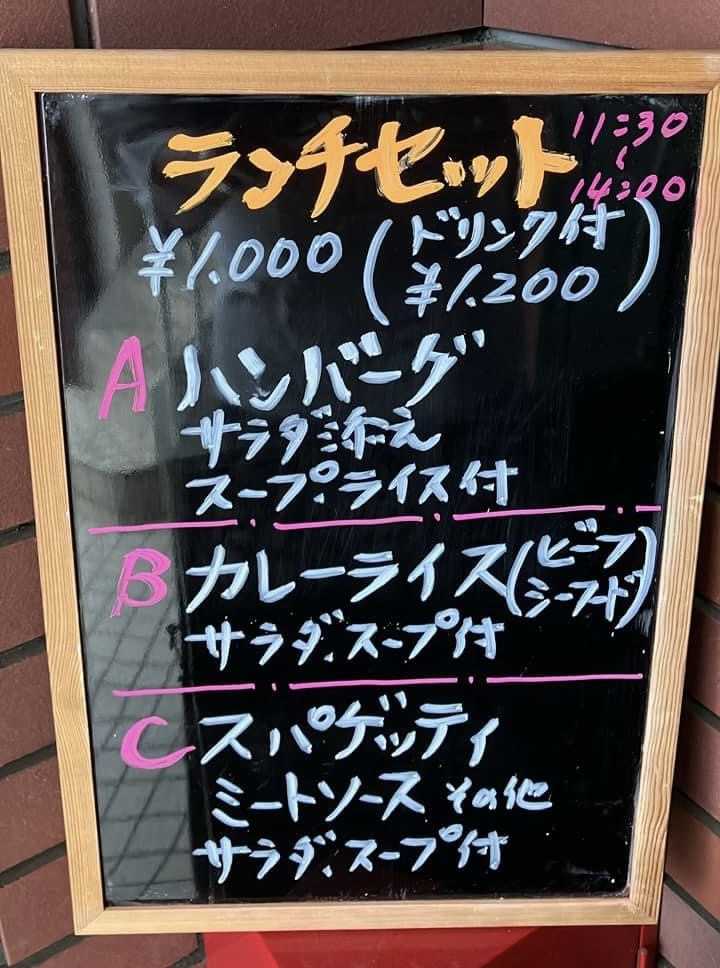 ランチセット 11:30
~
14:00
¥1.000 (ドリンク付
¥1.200)
A ハンバーグ
サラダ添え
スープ.ライス付
B カレーライス(ビーフ
シーフード)
サラダ.スープ付
C スパゲッティ
ミートソース その他
サラダ.スープ付